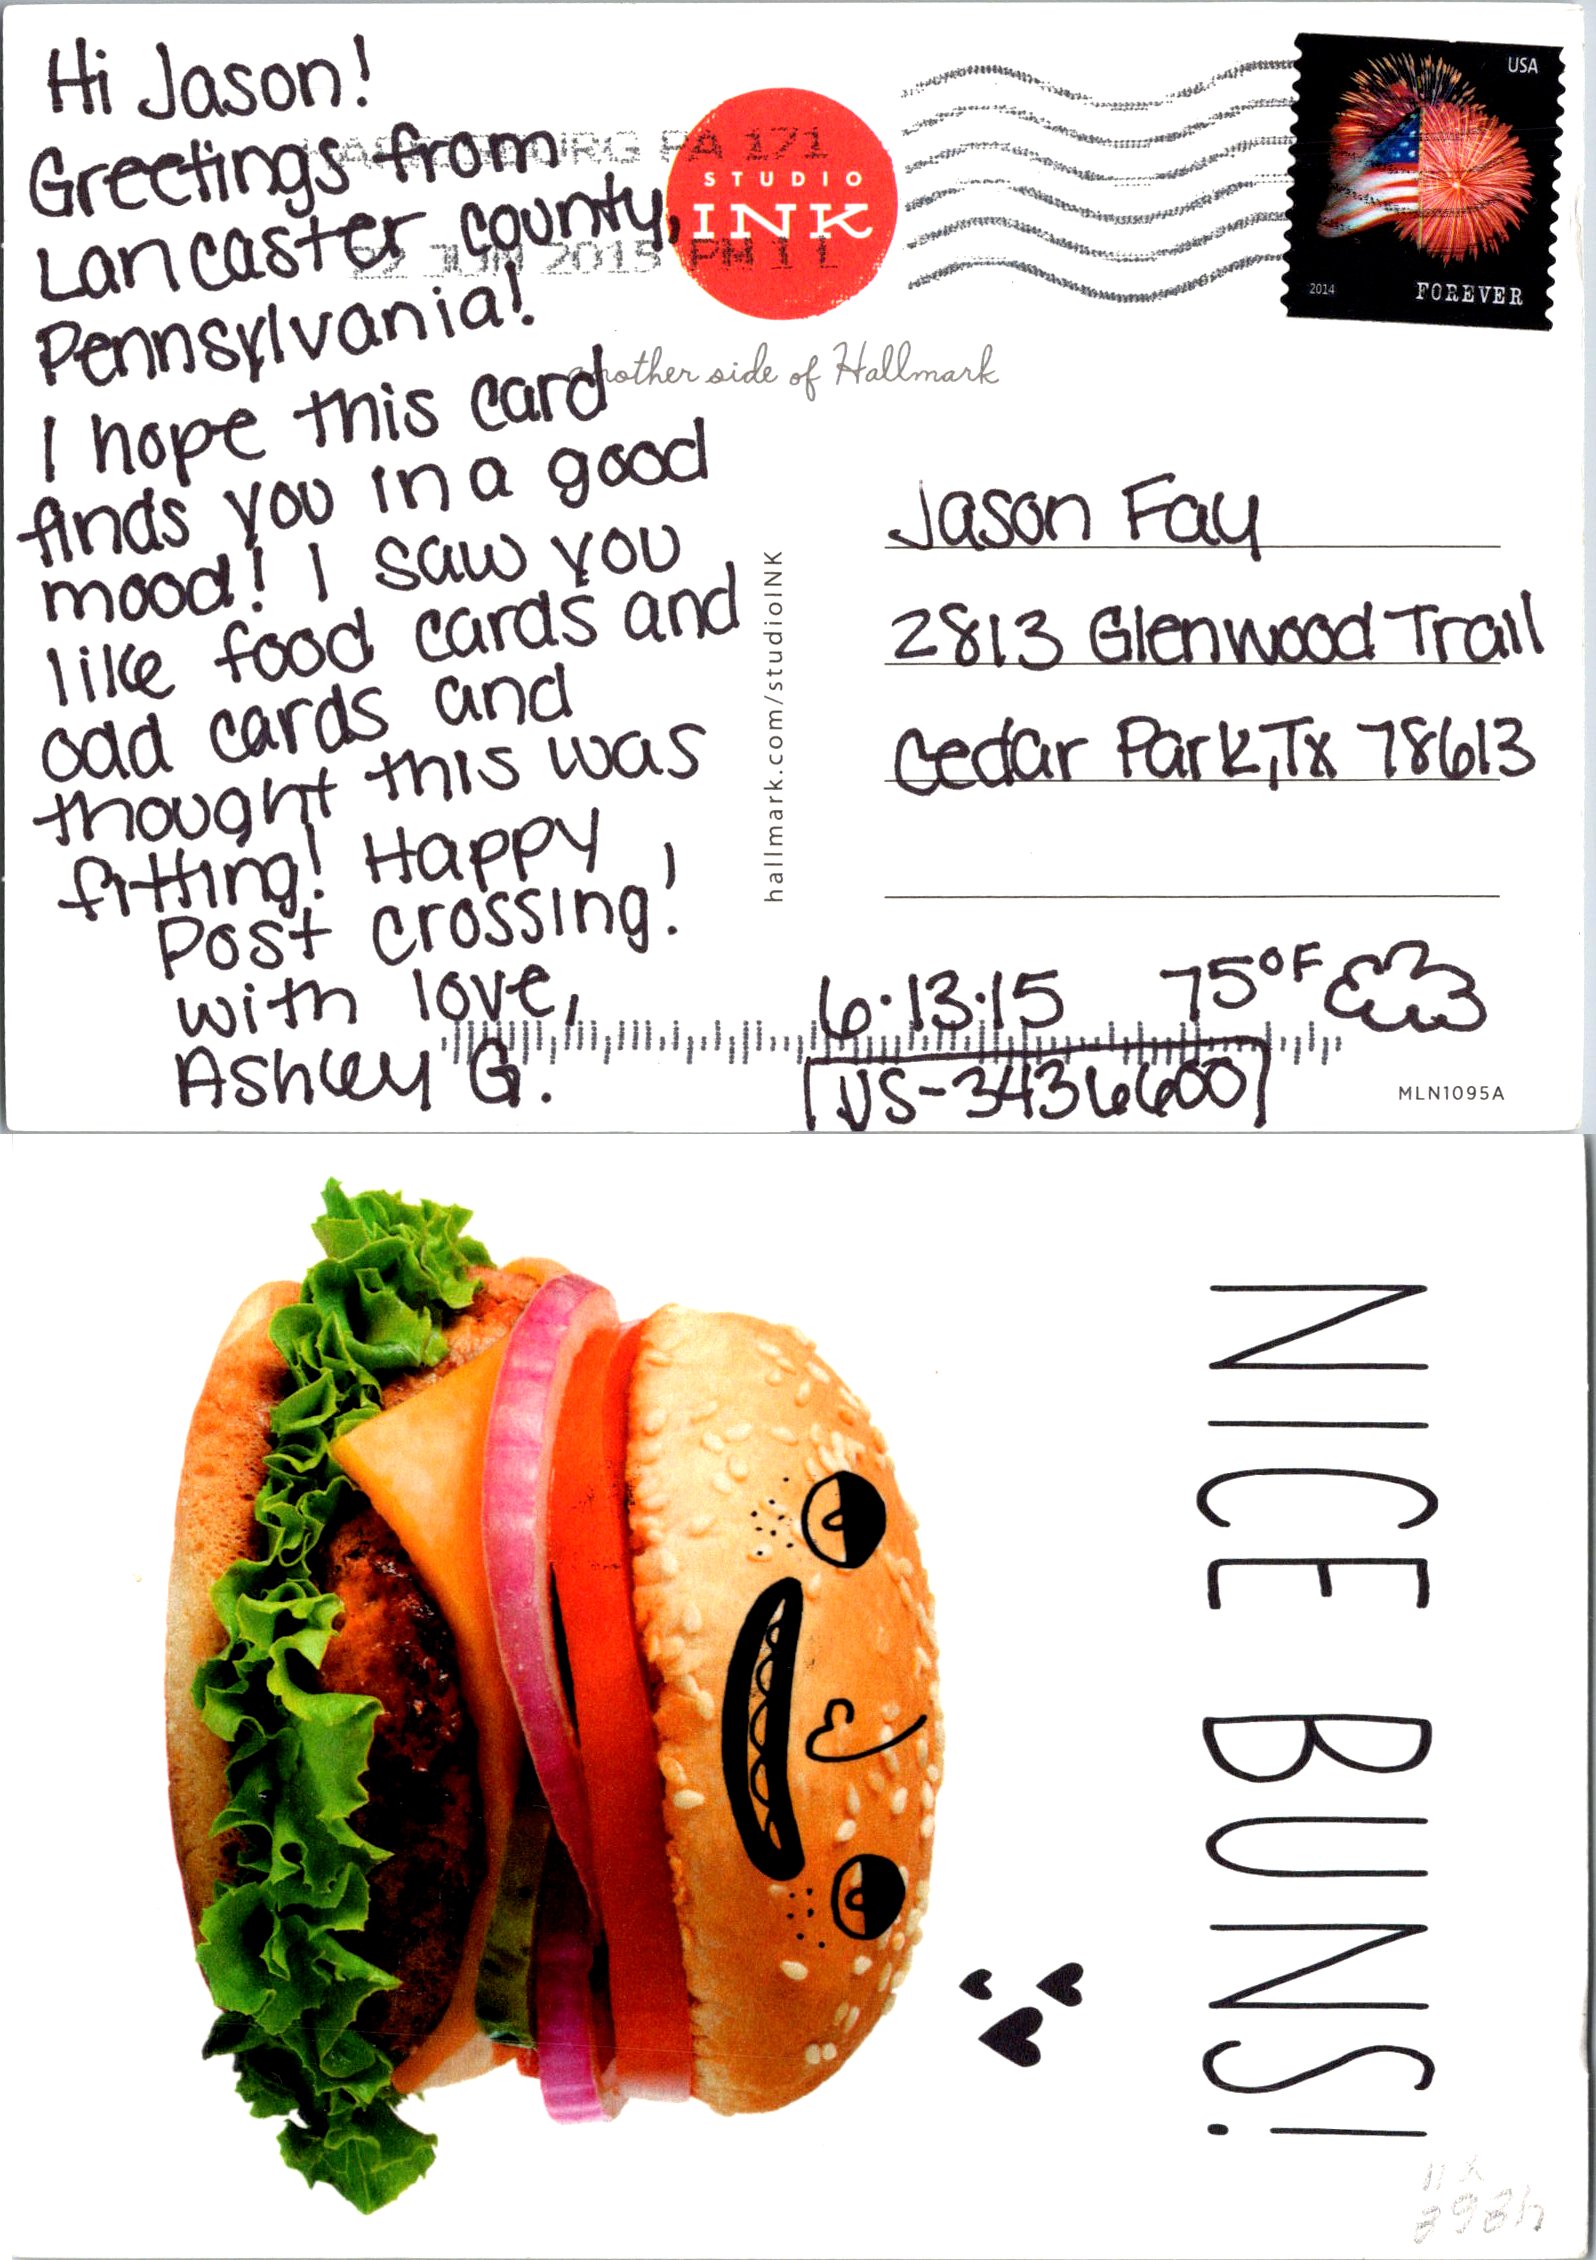 Hi Jason!
Greetings from
Lancaster county,
Pennsylvania!
I hope this card
finds you in a good
mood! I saw you
like food cards and
odd cards and
thought this was
fitting! Happy
Post crossing!
with love,
Ashley G.
PA 171
22 JUN 2015 PM 1 L
STUDIO
INK
another side of Hallmark
USA
2014 FOREVER
hallmark.com/studioINK
Jason Fay
2813 Glenwood Trail
Cedar Park, Tx 78613
6·13·15 75°F
[US-3436600]
MLN1095A
NICE BUNS!